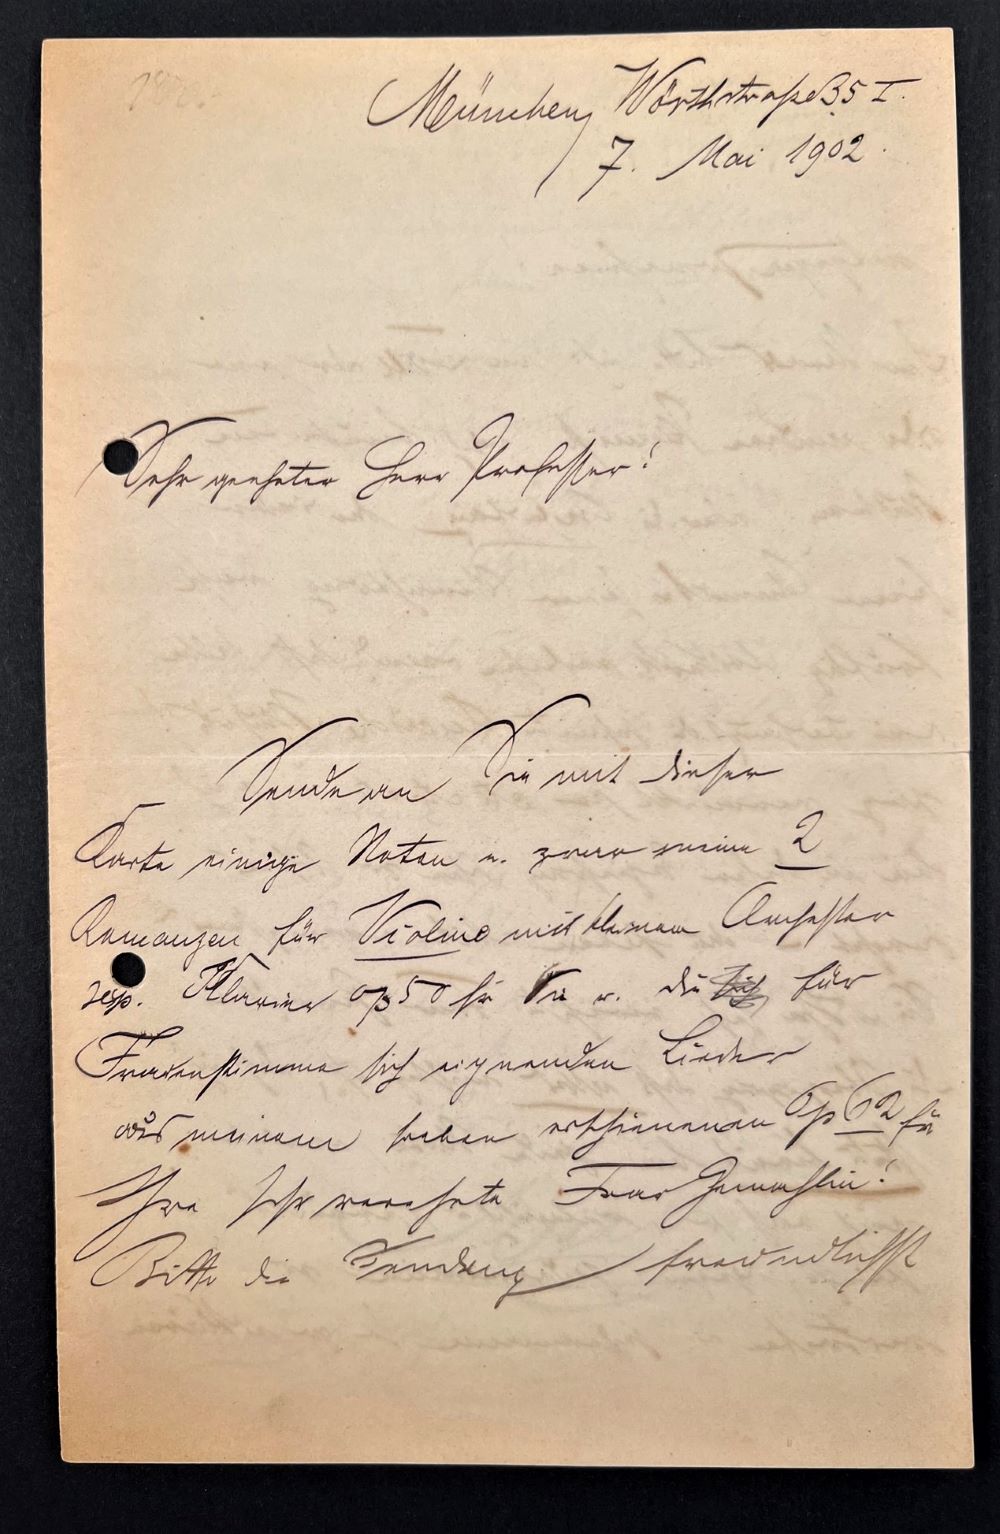 München, Wörthstraße 35 I.
7. Mai 1902.
Sehr geehrter Herr Professor!
Sende an Sie mit dieser
Karte einige Noten u. zwar meine 2
Romanzen für Violine mit kleinem Orchester
resp. Klavier op 50 für Sie u. die für
Frauenstimme sich eignenden Lieder
aus meinem soeben erschienenen Op 62 für
Ihre sehr verehrte Frau Gemahlin!
Bitte die Sendung freundlichst